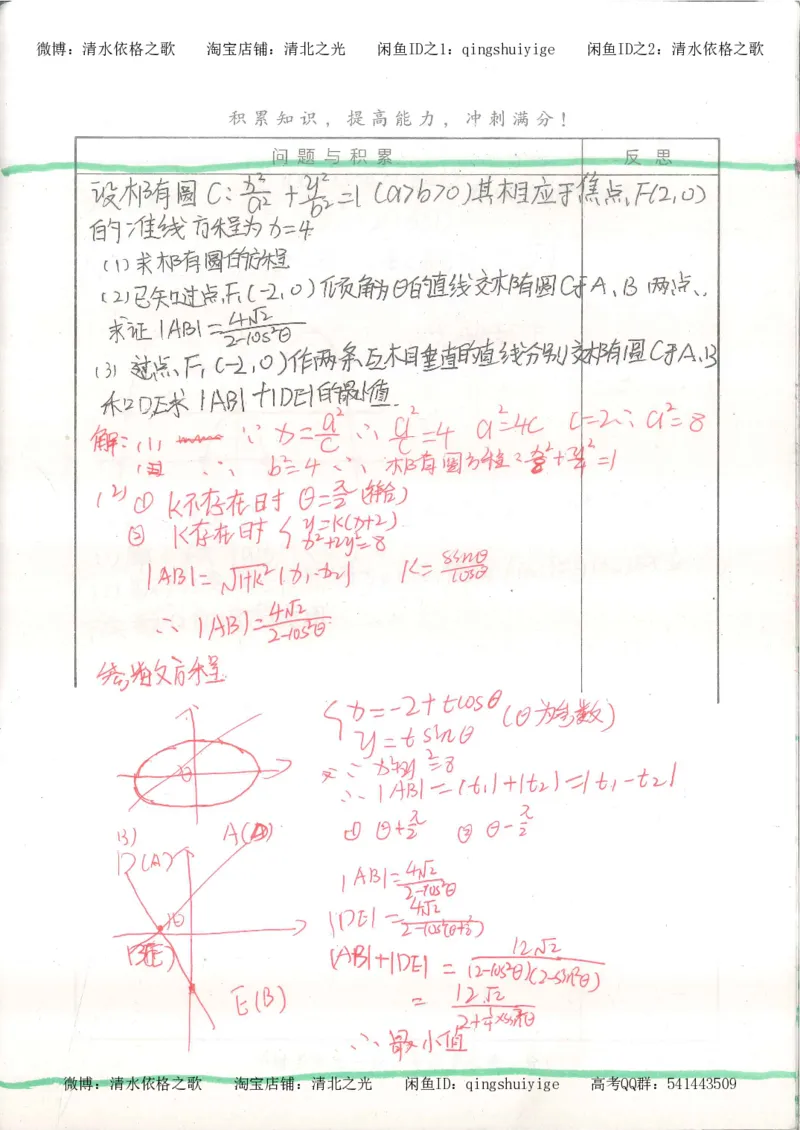 微博：清水依格之歌 淘宝店铺：清北之光 闲鱼ID之1：qingshuiyige 闲鱼ID之2：清水依格之歌
积累知识，提高能力，冲刺满分！
问题与积累 反思
设椭圆C：x²/a² + y²/b² =1 (a>b>0)其相应于焦点F(2,0)
的准线方程为x=4
(1)求椭圆的方程
(2)已知过点F₁(-2,0)倾角为θ的直线交椭圆C于A、B两点、
求证|AB|=4√2/2-cos²θ
(3)过点F₁(-2,0)作两条互相垂直的直线分别交椭圆C于A、B
和DE求|AB|+|DE|的最小值.
解：(1) ∵ x=a²/c ∴ a²/c=4 a²=4c c=2 ∴ a²=8
∴ b²=4 ∴ 椭圆方程：x²/8+y²/4=1
(2) ① K不存在时 θ=π/2
② K存在时 { y=k(x+2)
x²+2y²=8
|AB|=√1+k² |x₁-x₂| K=sinθ/cosθ
∴ |AB|=4√2/2-cos²θ
方程
{ x=-2+tcosθ (θ为参数)
y=tsinθ
∵ x²+2y²=8
∴ |AB|=|t₁|+|t₂|=|t₁-t₂|
① θ+π/2 ② θ-π/2
(3) A(D)
D(A)
θ
E(B)
|AB|=4√2/2-cos²θ
|DE|=4√2/2-cos²(θ+π/2)
|AB|+|DE| = 12√2/(2-cos²θ)(2-sin²θ)
= 12√2/2+¼×sin²θ
∴ 最小值
微博：清水依格之歌 淘宝店铺：清北之光 闲鱼ID：qingshuiyige 高考QQ群：541443509